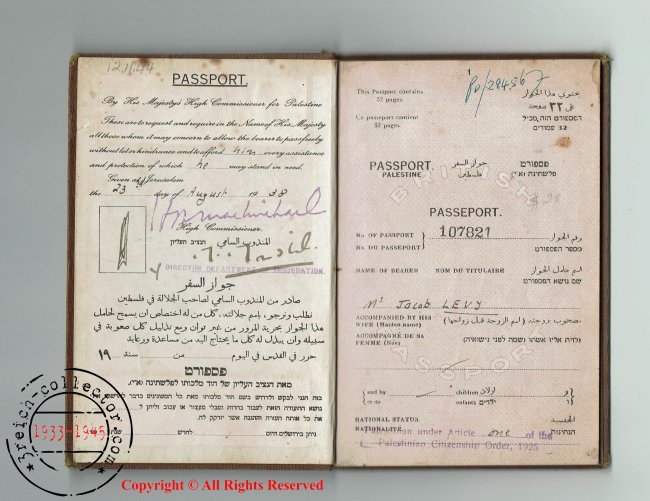 12.11.44
PASSPORT.
By His Majesty's High Commissioner for Palestine
These are to request and require in the Name of His Majesty
all those whom it may concern to allow the bearer to pass freely
without let or hindrance and to afford him every assistance
and protection of which he may stand in need.
Given at Jerusalem
the 23 day of August 1938
High Commissioner.
المندوب السامي הנציב העליון
DIRECTOR DEPARTMENT OF IMMIGRATION.
جواز السفر
صادر من المندوب السامي لصاحب الجلالة في فلسطين
نطلب ونرجو، باسم جلالته، كل من له اختصاص ان يسمح لحامل
هذا الجواز بحرية المرور من غير توان ومع تذليل كل صعوبة في
سبيله وان يبذل له كل ما يحتاج اليه من مساعدة ورعاية
حرر في القدس في اليوم من سنة ١٩
פספורט
מאת הנציב העליון של הוד מלכותו לפלשתינה (א״י).
ניתן בירושלים היום לחדש שנת 19
This Passport contains
32 pages.
Ce passeport contient
32 pages.
P0/284567
يحتوي هذا الجواز
على ٣٢ صفحة
הפספורט הזה מכיל
32 עמודים
PASSPORT. جواز السفر פספורט
PALESTINE فلسطين פלשתינה (א״י)
BRITISH
PASSPORT
PASSEPORT.
No. OF PASSPORT 107821 رقم الجواز
No. DU PASSEPORT מספר הפספורט
NAME OF BEARER NOM DU TITULAIRE اسم حامل الجواز
שם נושא הפספורט
Mr Jacob LEVY
ACCOMPANIED BY HIS
WIFE (Maiden name)
ACCOMPAGNÉ DE SA
FEMME (Née)
مصحوب بزوجته (اسم الزوجة قبل زواجها)
and by children اولاد و
et de enfants ילדים
NATIONAL STATUS. الجنسية
NATIONALITÉ הנתינות
under Article one of the
Palestinian Citizenship Order, 1925
3reich-collector.com
1933-1945
Copyright © All Rights Reserved